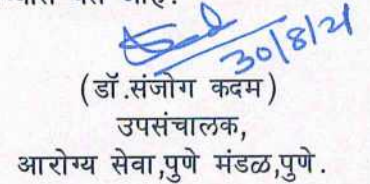 30/8/21
(डॉ.संजोग कदम)
उपसंचालक,
आरोग्य सेवा,पुणे मंडळ,पुणे.